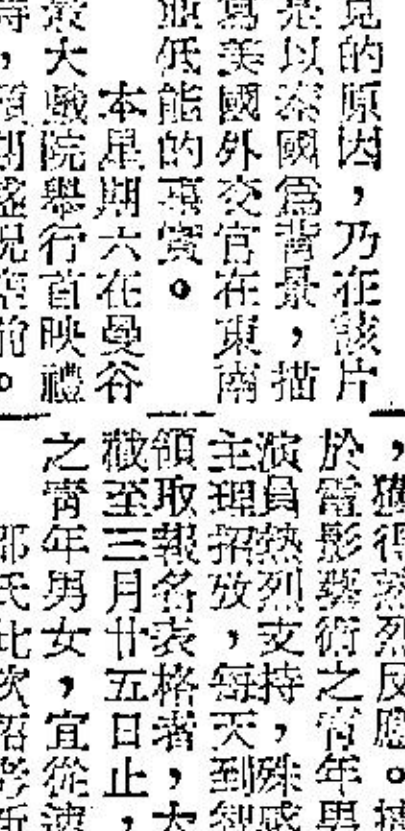 見的原因，乃在該片
是以泰國爲背景，描
寫美國外交官在東南
低能的事實。
本星期六在曼谷
大戲院舉行首映禮
時，盛況空前。
，獲得熱烈反應。
於電影藝術之青年男
演員熱烈支持，殊感
主理招攷，每天到
領取報名表格者，大
截至三月廿五日止，
之青年男女，宜從速
邵氏此次招考新